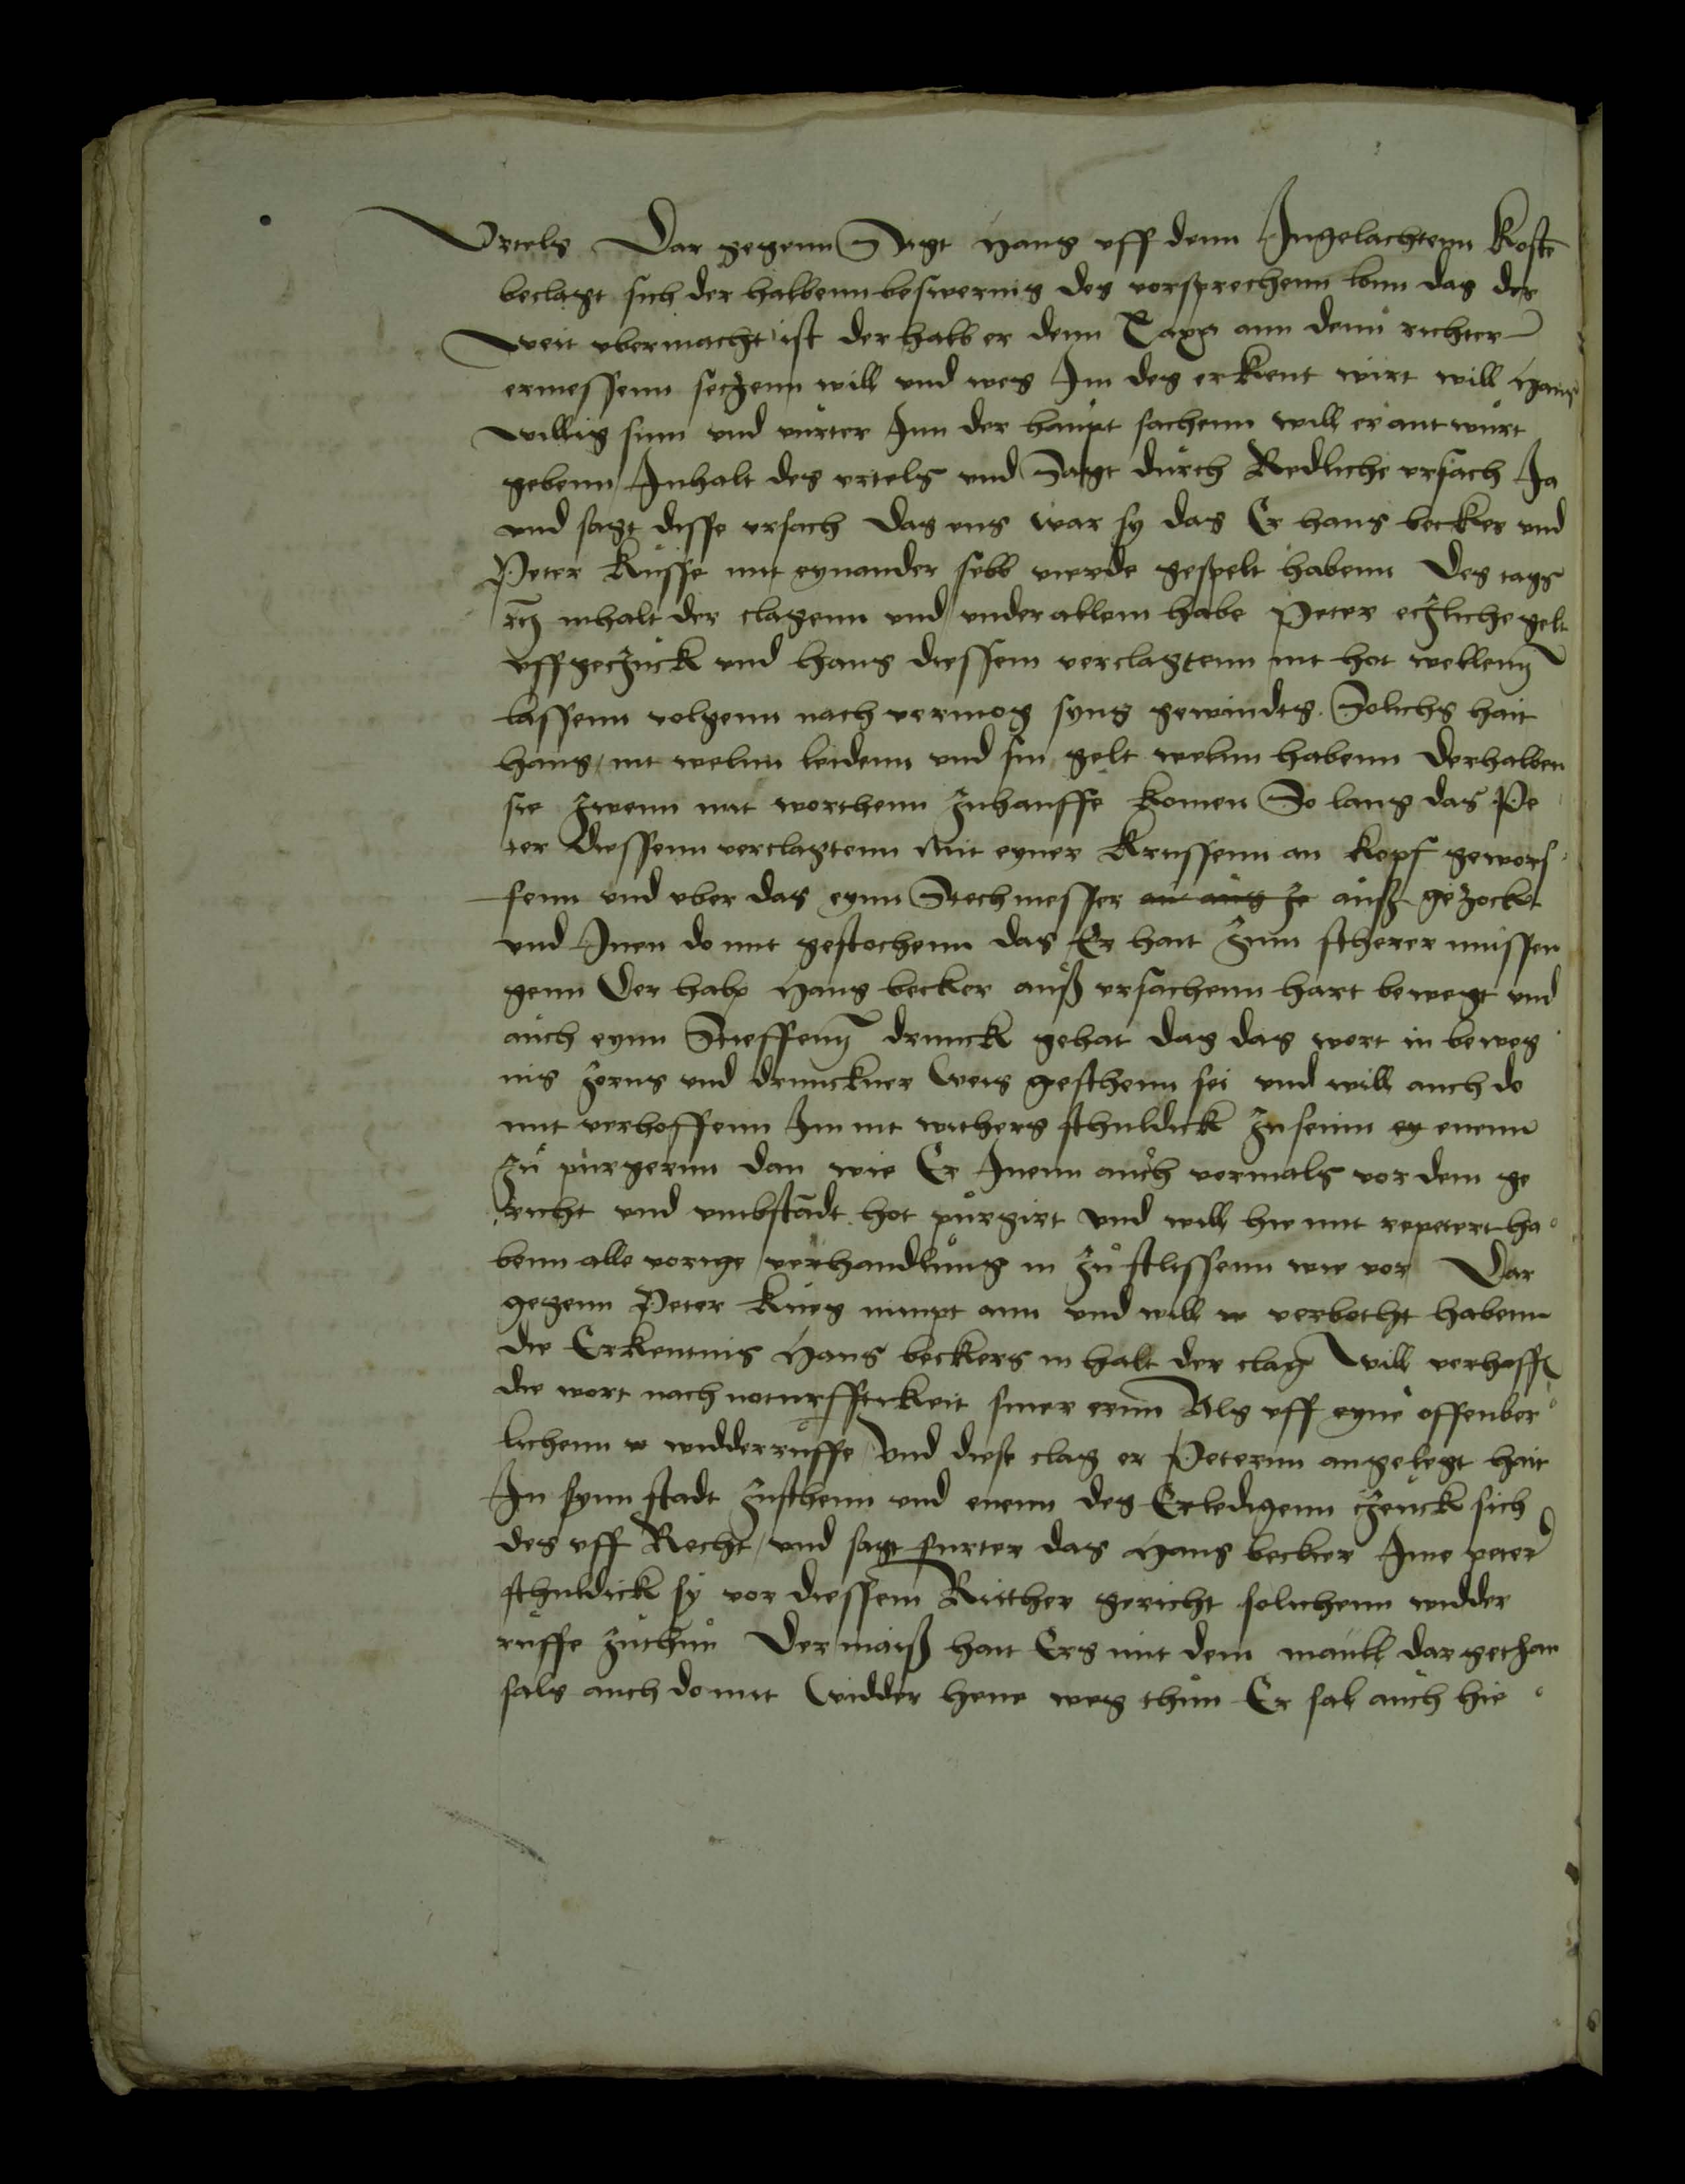 Vrtels Dar gegenn Sagt Hans vff denn Ingelachtenn Koste
beclagt sich der halbenn beswernis des vorsprechenn lonn das des
weit vbermacht ist der halb er denn Taxa ann denn richter
ermessenn seczenn will vnd wes Im des erkent wirt will Hans
willig sinn vnd vurter Inn der haupt sachenn will er antwurt
gebenn Inhalt des vrtels vnd Sagt durch Redliche vrsach Ja
vnd sagt disse vrsach das vns war sy das Er hans becker vnd
Peter mit eynander selb vierde gespelt habenn Des tags
etc inhalt der clagenn vnd vnder allem habe Peter eczliche gelt
vffgeczuck vnd hans diessem verclagtenn nit hot wellenn
lassenn volgenn nach vermog syns gewindts Solichs hait
hans nit welnn leidenn vnd sin gelt welnn habenn Derhalben
sie zwenn mit worthenn zuhauffe komen So lang das Pe
ter diessenn verclagtenn mit eyner Krussenn an kopf gewors
fenn vnd vber das eynn Stechmesser an aus ze auß gezockt
vnd Inen do mit gestochenn das Er hait zum scherer mussen
genn Der halb Hans becker auß vrsachenn hart bewegt vnd
auch eynn Steffenn drunck gehat das das wort in beweg
nis zorns vnd drunckner weis geschenn sei vnd will auch do
mit verhoffenn Im nit withers schuldick zu seinn ey enenn
zu purgernn dan wie Er Inenn auch vormals vor dem ge
richt vnd vmbstadt hot purgirt vnd will hie mit repetert ha
benn alle vorige verhandlung in zu slissenn wie vor Dar
gegenn Peter Krieg nimpt ann vnd will verbotht habenn
die Erkentnis Hans beckers in halt der clag Will verhoff
die wort nach noturfftickeit siner erenn Als vff eyne offenber
lichenn widderruffe Vnd diese clag er Peternn angelegt hait
In synn stadt zusthenn vnd enenn des Erledigenn czeuck sich
des vff Recht vnd sagt furter das Hans becker Ime peter
schuldick sy vor diessem Ritther gericht solichenn widder
ruffe zuthun Der maiß hait Ers mit dem maull dar gethan
sals auch do mit widder hene weg thun Er sal auch hie